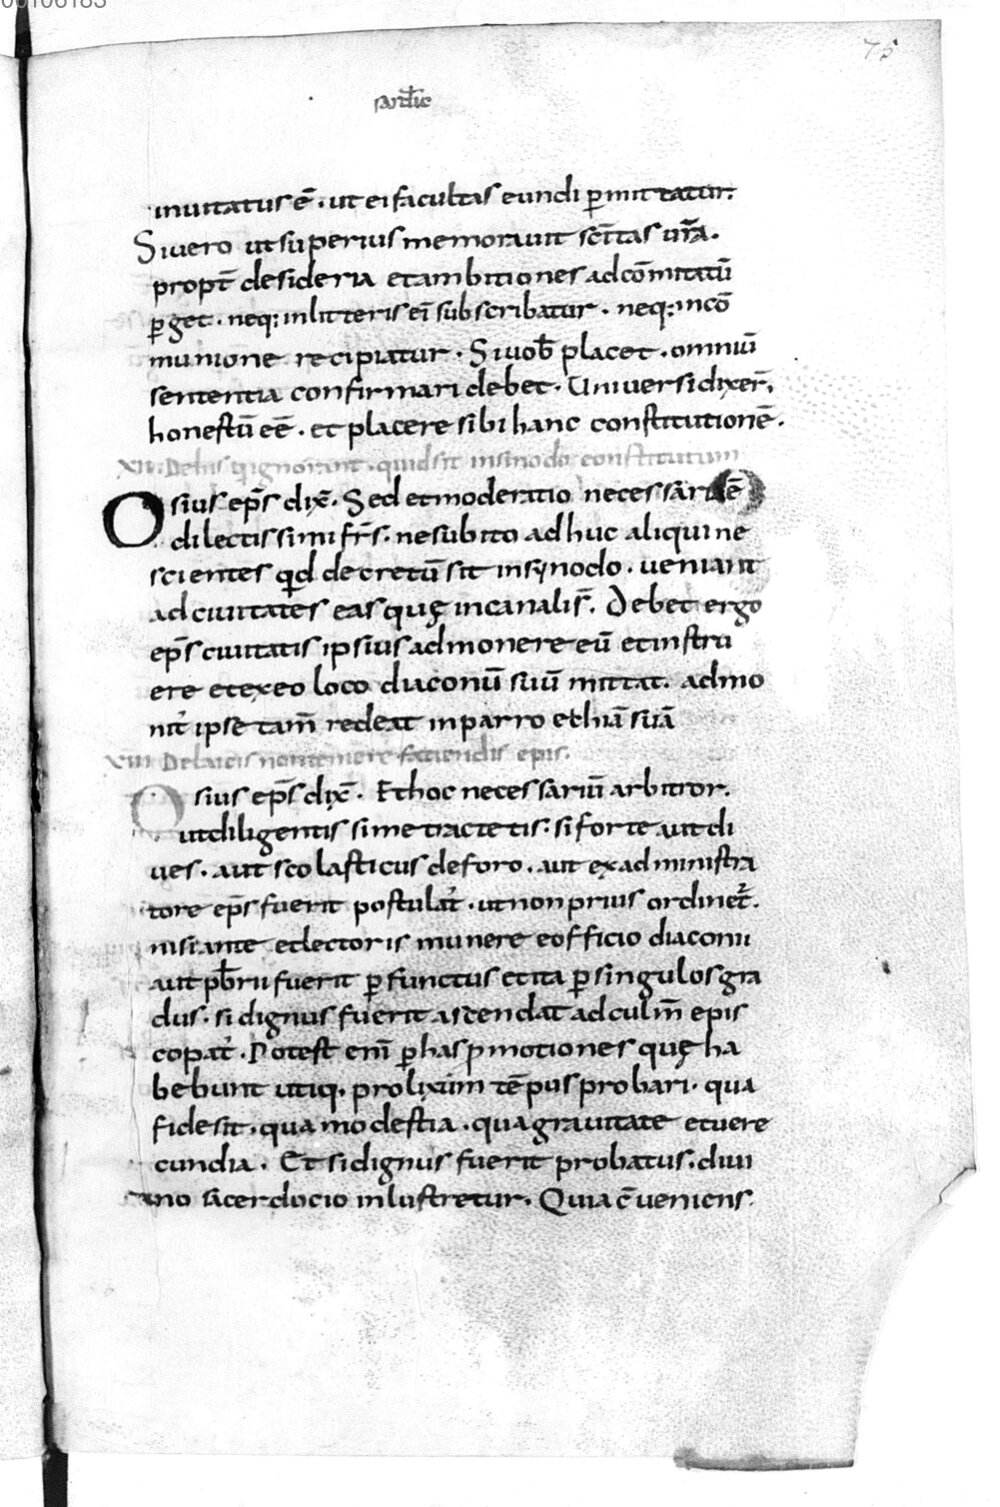 00106183
75
sardic̄
inuitatus ē. ut ei facultas eundi p̱mittatur.
Si uero ut superius memorauit sc̄itas ur̄a.
propt̄ desideria et ambitiones ad com̄itatū
p̱get. neq; in litteris ei subscribatur. neq; in cō
munione recipiatur. Si uob̄ placet. omniū
sententia confirmari debet. Uniuersi dixer̄.
honestū eē. et placere sibi hanc constitutionē.
XII. De his qui ignorant. quid sit in sinodo constitutum
Osius ep̄s dix̄. Sed et moderatio necessaria ē
dilectissimi fr̄s. ne subito adhuc aliqui ne
scientes qd̄ decretū sit in synodo. ueniant
ad ciuitates eas quę in canali s̄. Debet ergo
ep̄s ciuitatis ipsius admonere eū et instru
ere et ex eo loco diaconū suū mittat. admo
nit᷒ ipse tam̄ redeat in parrochiā suā
XIII De laicis non temere faciendis epis.
Osius ep̄s dix̄. Et hoc necessariū arbitror.
ut diligentissime tractetis. si forte aut di
ues. aut scolasticus de foro. aut ex administra
tore ep̄s fuerit postulat᷒. ut non prius ordinet᷒.
nisi ante et lectoris munere et officio diaconii
aut pb̄rii fuerit p̱functus et ita p̱ singulos gra
dus. si dignus fuerit ascendat ad culm̄ epis
copat᷒. Potest enī p̱ has p̱motiones quę ha
bebunt utiq. prolixum tēpus probari. qua
fide sit. qua modestia. qua grauitate et uere
cundia. Et si dignus fuerit probatus. diui
no sacerdocio inlustretur. Quia c̄ueniens